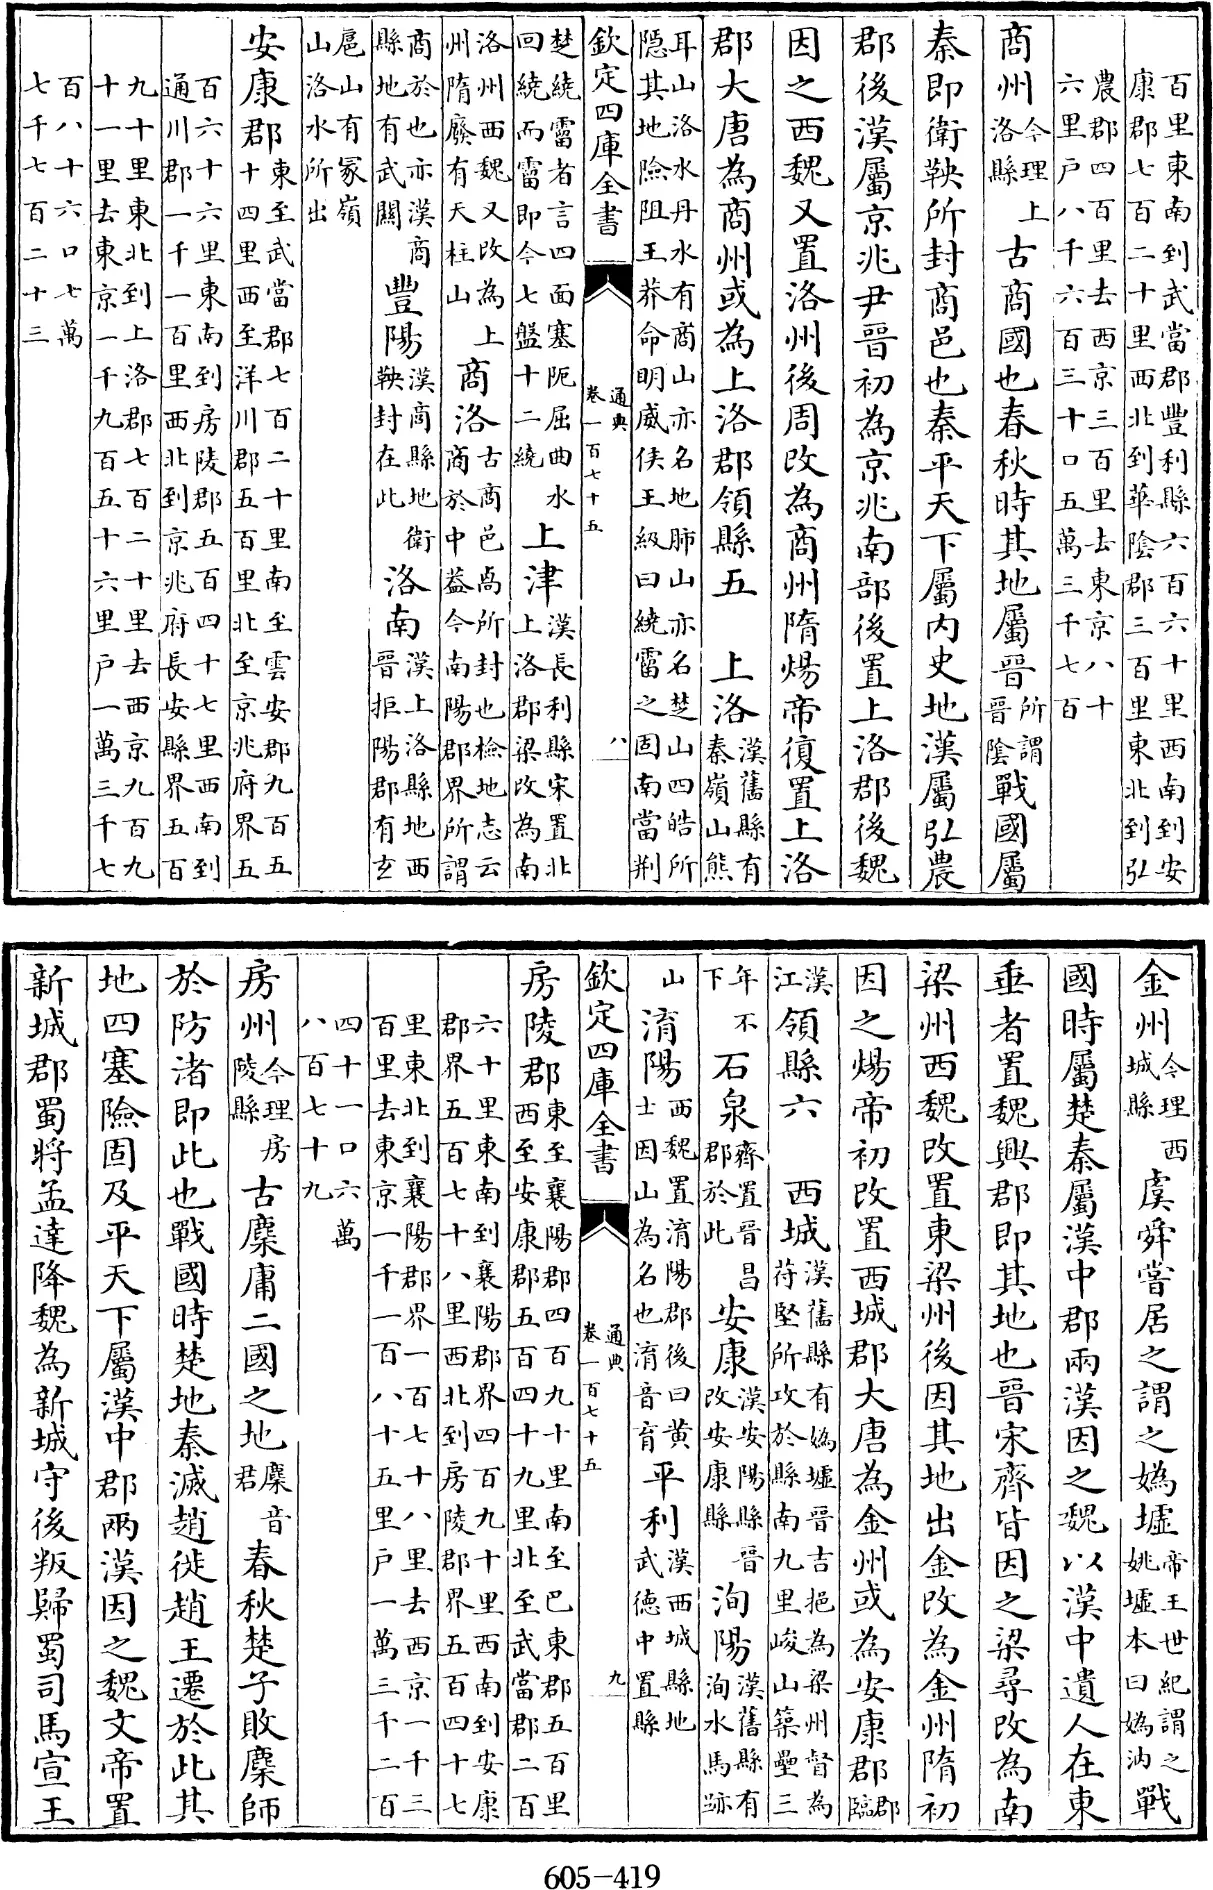 百里東南到武當郡豐利縣六百六十里西南到安
康郡七百二十里西北到華陰郡三百里東北到弘
農郡四百里去西京三百里去東京八十
六里戶八千六百三十口五萬三千七百
商州今理上洛縣古商國也春秋時其地屬晉所謂晉陰戰國屬
秦即衛鞅所封商邑也秦平天下屬内史地漢屬弘農
郡後漢屬京兆尹晉初為京兆南部後置上洛郡後魏
因之西魏又置洛州後周改為商州隋煬帝復置上洛
郡大唐為商州或為上洛郡領縣五　上洛漢舊縣有秦嶺山熊
耳山洛水丹水有商山亦名地肺山亦名楚山四皓所
隱其地險阻王莽命明威侯王級曰繞霤之固南當荆
欽定四庫全書　通典卷一百七十五　八
楚繞霤者言四面塞阨屈曲水
回繞而霤即今七盤十二繞　上津漢長利縣宋置北上洛郡梁改為南
洛州西魏又改為上
州隋廢有天柱山　商洛古商邑卨所封也檢地志云商於中蓋今南陽郡界所謂
商於也亦漢商
縣地有武關　豐陽漢商縣地衛鞅封在此　洛南漢上洛縣地西晉拒陽郡有玄
扈山有冢嶺
山洛水所出
安康郡東至武當郡七百二十里南至雲安郡九百五
十四里西至洋川郡五百里北至京兆府界五
百六十六里東南到房陵郡五百四十七里西南到
通川郡一千一百里西北到京兆府長安縣界五百
九十里東北到上洛郡七百二十里去西京九百九
十一里去東京一千九百五十六里戶一萬三千七
百八十六口七萬
七千七百二十三
金州今理西城縣虞舜嘗居之謂之媯墟帝王世紀謂之姚墟本曰媯汭戰
國時屬楚秦屬漢中郡兩漢因之魏以漢中遺人在東
垂者置魏興郡即其地也晉宋齊皆因之梁尋改為南
梁州西魏改置東梁州後因其地出金改為金州隋初
因之煬帝初改置西城郡大唐為金州或為安康郡郡臨
漢江領縣六　西城漢舊縣有媯墟晉吉挹為梁州督為苻堅所攻於縣南九里峻山築壘三
年不下　石泉齊置晉昌郡於此　安康漢安陽縣晉改安康縣　洵陽漢舊縣有洵水馬跡
山　淯陽西魏置淯陽郡後曰黃土因山為名也淯音育　平利漢西城縣地武德中置縣
欽定四庫全書　通典卷一百七十五　九
房陵郡東至襄陽郡四百九十里南至巴東郡五百里
西至安康郡五百四十九里北至武當郡二百
六十里東南到襄陽郡界四百九十里西南到安康
郡界五百七十八里西北到房陵郡界五百四十七
里東北到襄陽郡界一百七十八里去西京一千三
百里去東京一千一百八十五里戶一萬三千二百
四十一口六萬
八百七十九
房州今理房陵縣古麇庸二國之地麇音君春秋楚子敗麇師
於防渚即此也戰國時楚地秦滅趙徙趙王遷於此其
地四塞險固及平天下屬漢中郡兩漢因之魏文帝置
新城郡蜀將孟達降魏為新城守後叛歸蜀司馬宣王
605-419